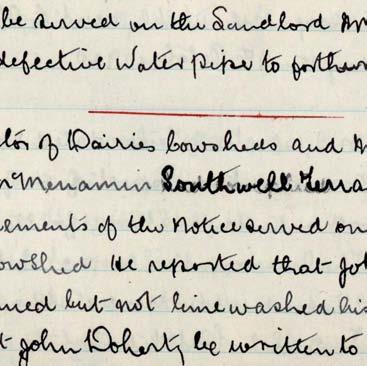 be served on the Landlord
defective Water Pipe to forthw
tor of Dairies Cowsheds and
McMenamin Southwell Terra
ements of the Notice served on
owshed He reported that Jo
ned but not lime washed his
t John Doherty be written to